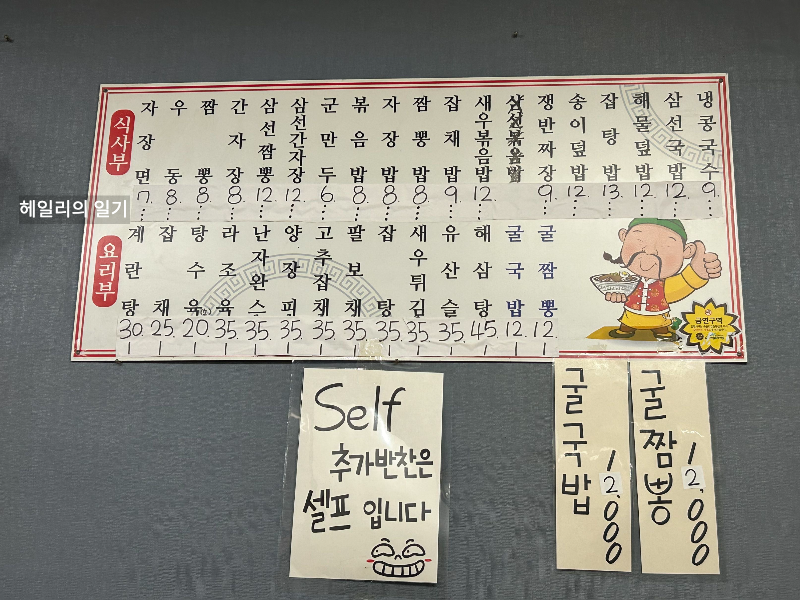 식사부
자장면 7.
우동 8.
짬뽕 8.
간자장 8.
삼선짬뽕 12.
삼선간자장 12.
군만두 6.
볶음밥 8.
자장밥 8.
짬뽕밥 8.
잡채밥 9.
새우볶음밥 12.
삼선볶음밥
쟁반짜장 9.
송이덮밥 12.
잡탕밥 13.
해물덮밥 12.
삼선국밥 12.
냉콩국수 9.
헤일리의 일기
요리부
계란탕 30
잡채 25.
탕수육 20
라조육 35.
난자완스 35.
양장피 35.
고추잡채 35.
팔보채 35.
잡탕 35.
새우튀김 35.
유산슬 35.
해삼탕 45.
굴국밥 12.
굴짬뽕 12.
금연구역
Self
추가반찬은
셀프 입니다
굴국밥 12,000
굴짬뽕 12,000